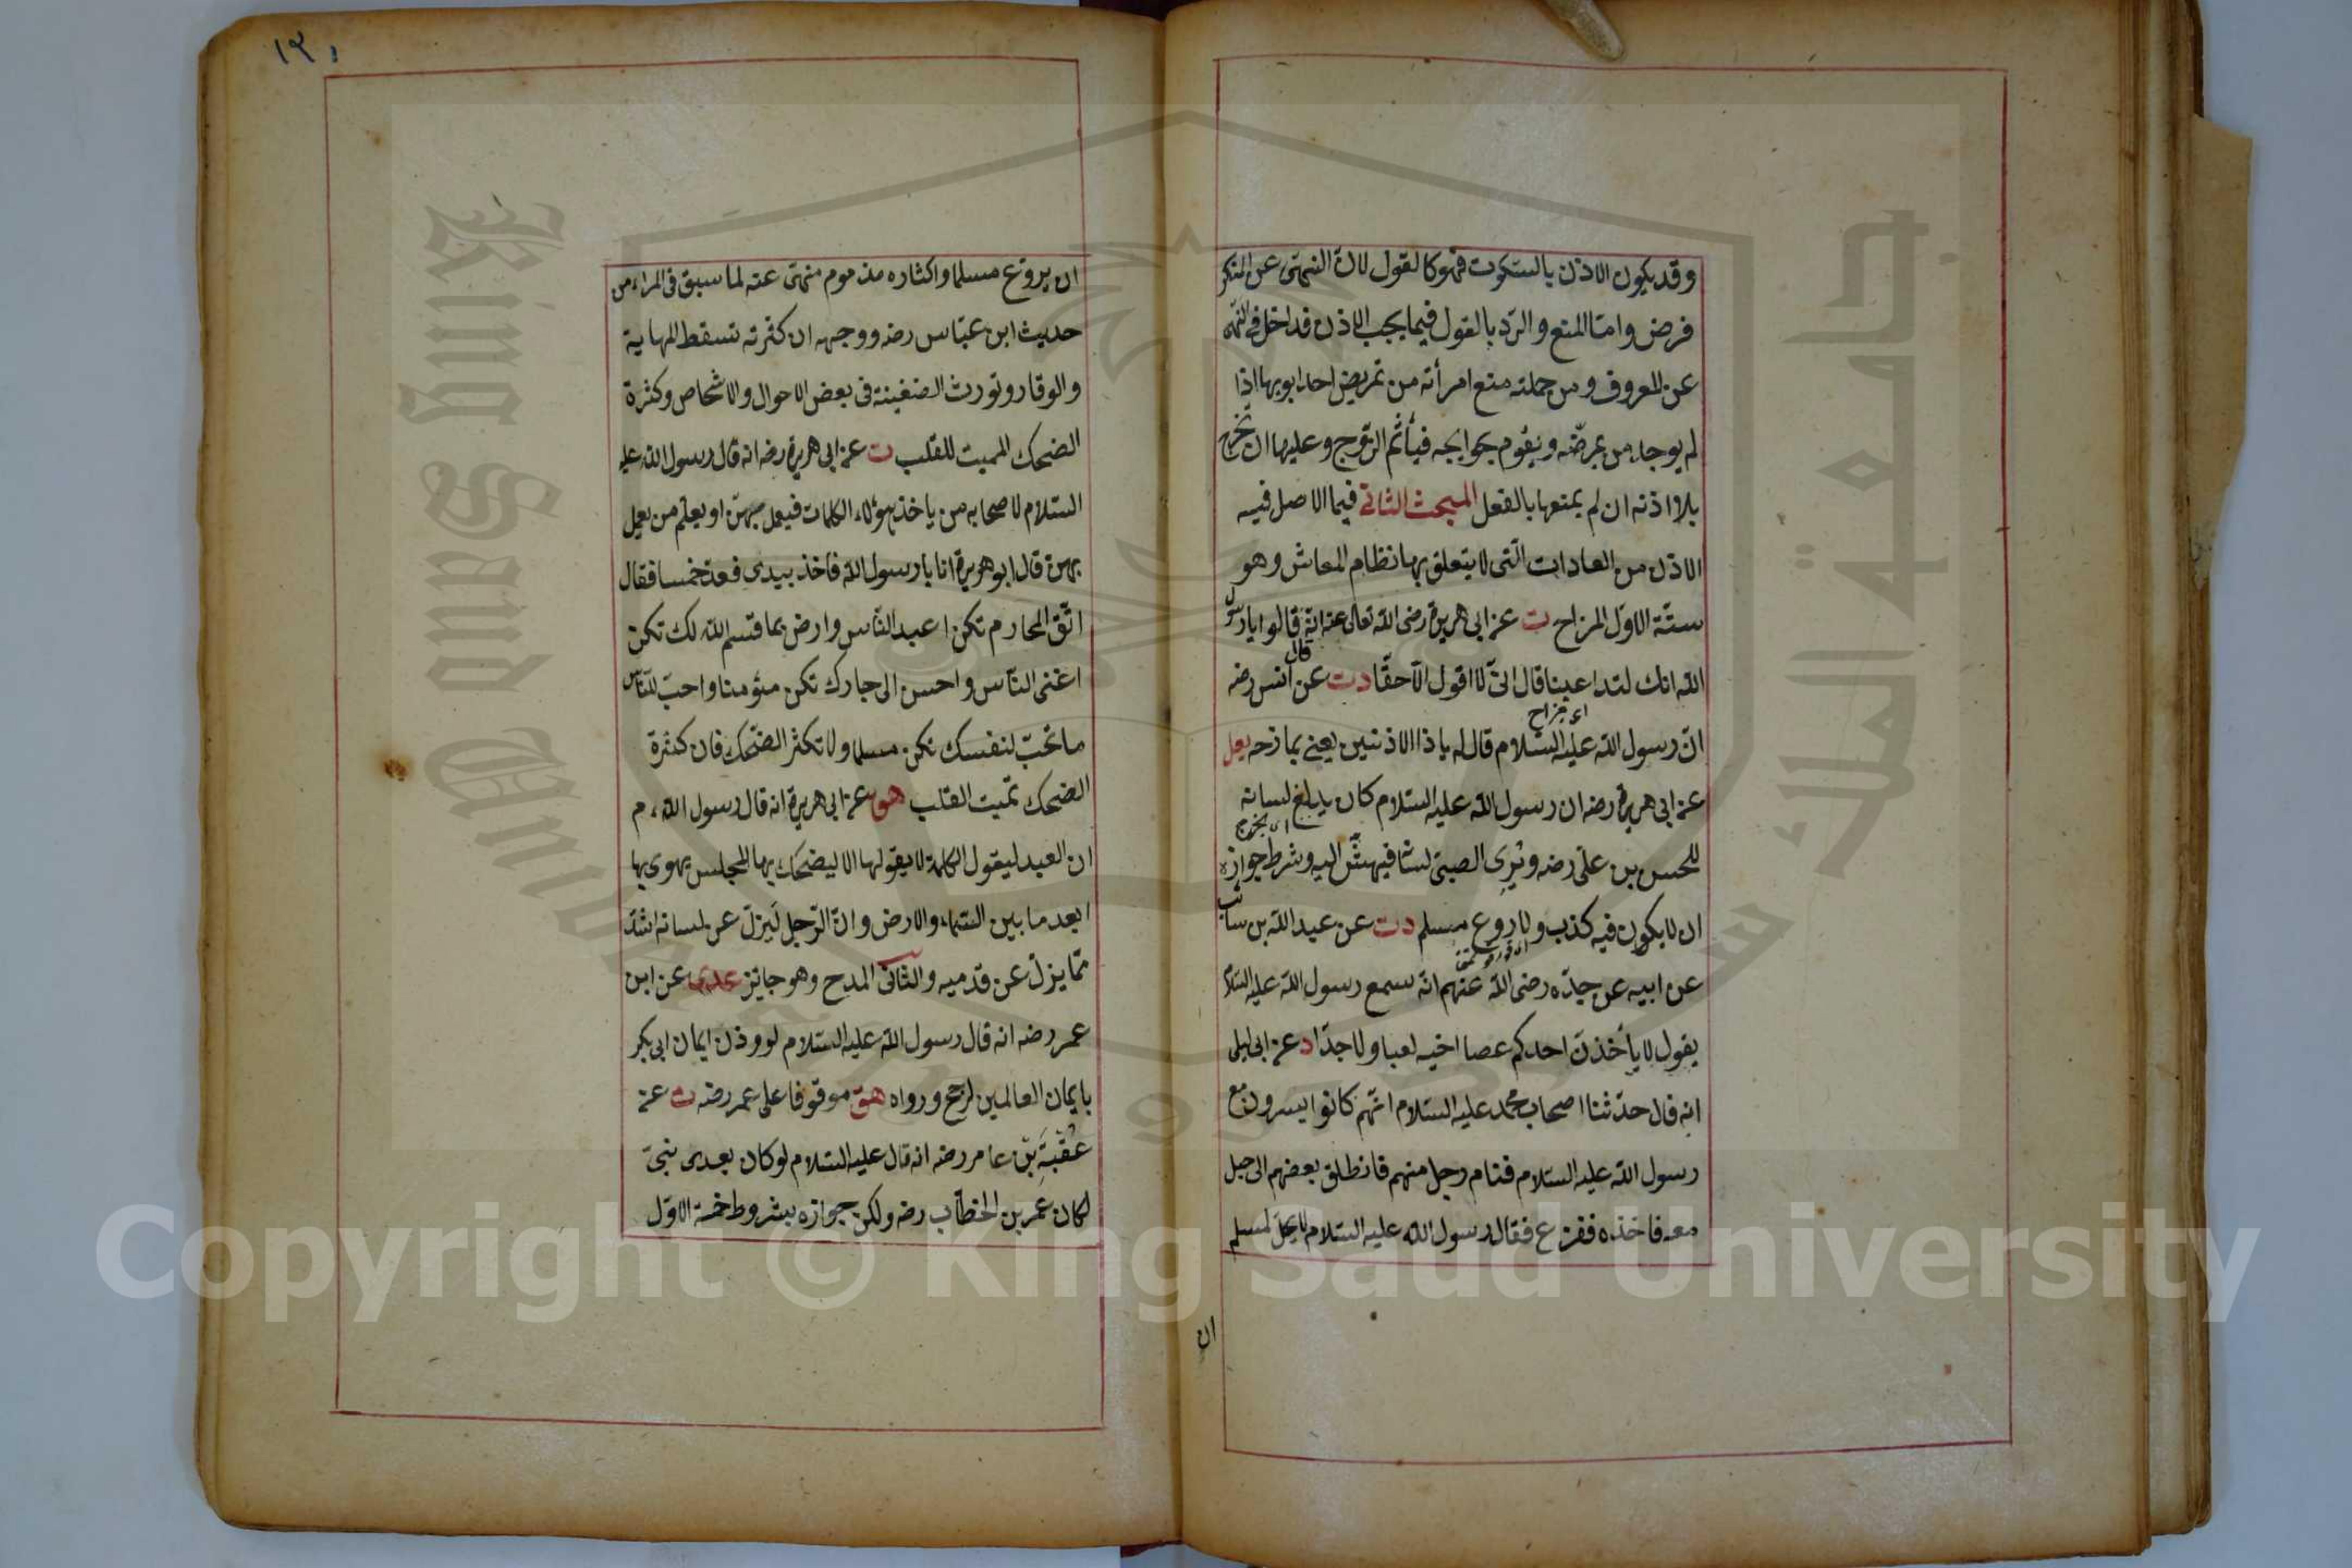 وقد يكون الاذن بالسكوت فهو كالقول لان النهى عن المنكر
فرض واما المنع والرد بالقول فيما يجب الاذن فداخل فى النهى
عن المعروف ومن جملته منع امرأته من تمريض احد ابويها اذا
لم يوجد من يمرضه ويقوم بحوايجه فيأثم الزوج وعليها ان تخرج
بلا اذنه ان لم يمنعها بالفعل المبحث الثانى فيما الاصل فيه
الاذن من العادات التى لا يتعلق بها نظام المعاش وهو
ستة الاول المزاح ت عن ابى هريرة رضى الله تعالى عنه انه قال قالوا يا رسول
الله انك لتداعبنا قال انى لا اقول الا حقا دت عن انس رضه
اى مزاح
ان رسول الله عليه السلام قال له يا ذا الاذنين يعنى يمازحه يعلى
عن ابى هريرة رضه ان رسول الله عليه السلام كان يدلع لسانه
اى يخرج
للحسن بن على رضه ويرى الصبى لسانه فيهش اليه وشرط جوازه
ان لا يكون فيه كذب ولا روع مسلم دت عن عبد الله بن سائب
عن ابيه عن جده رضى الله عنهم انه سمع رسول الله عليه السلام
يقول لا يأخذن احدكم عصا اخيه لعبا ولا جدا د عن ابى ليلى
انه قال حدثنا اصحاب محمد عليه السلام انهم كانوا يسرون مع
رسول الله عليه السلام فنام رجل منهم فانطلق بعضهم الى حبل
معه فاخذه ففزع فقال رسول الله عليه السلام لا يحل لمسلم
ان
١٣٠
ان يروع مسلما واكثاره مذموم منهى عنه لما سبق فى المراء من
حديث ابن عباس رضه ووجهه ان كثرته تسقط المهابة
والوقار وتورث الضغينة فى بعض الاحوال والاشخاص وكثرة
الضحك المميت للقلب ت عن ابى هريرة رضه انه قال رسول الله عليه
السلام لاصحابه من ياخذ هؤلاء الكلمات فيعمل بهن او يعلم من يعمل
بهن قال ابو هريرة انا يا رسول الله فاخذ بيدى فعد خمسا فقال
اتق المحارم تكن اعبد الناس وارض بما قسم الله لك تكن
اغنى الناس واحسن الى جارك تكن مؤمنا واحب للناس
ما تحب لنفسك تكن مسلما ولا تكثر الضحك فان كثرة
الضحك تميت القلب هق عن ابى هريرة انه قال رسول الله م
ان العبد ليقول الكلمة لا يقولها الا ليضحك بها المجلس يهوى بها
ابعد ما بين السماء والارض وان الرجل ليزل عن لسانه اشد
مما يزل عن قدميه والثانى المدح وهو جايز عدى عن ابن
عمر رضه انه قال رسول الله عليه السلام لو وزن ايمان ابى بكر
بايمان العالمين لرجح ورواه هق موقوفا على عمر رضه ت عن
عقبة بن عامر رضه انه قال عليه السلام لو كان بعدى نبى
لكان عمر بن الخطاب رضه ولكن جوازه بشروط خمسة الاول
King Saud University
جامعة الملك
Copyright © King Saud University